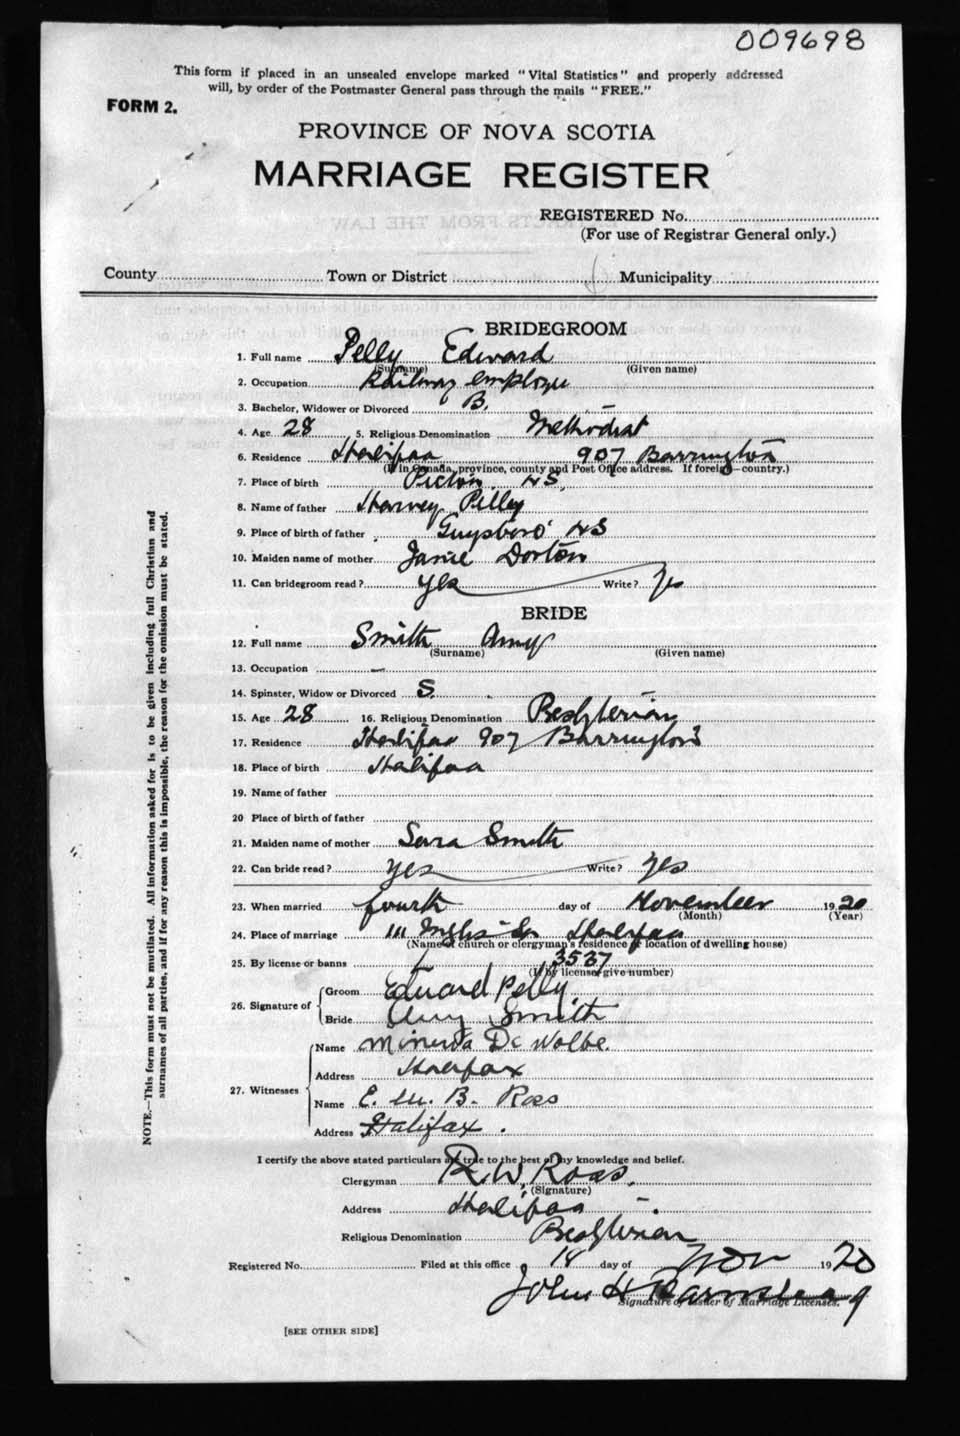 009698
This form if placed in an unsealed envelope marked "Vital Statistics" and properly addressed
will, by order of the Postmaster General pass through the mails "FREE."
FORM 2.
PROVINCE OF NOVA SCOTIA
MARRIAGE REGISTER
REGISTERED No.
(For use of Registrar General only.)
County Town or District Municipality
BRIDEGROOM
1. Full name Pelly Edward
(Surname) (Given name)
2. Occupation Railway employe
3. Bachelor, Widower or Divorced B.
4. Age 28 5. Religious Denomination Methodist
6. Residence Halifax 907 Barrington
(If in Canada, province, county and Post Office address. If foreign—country.)
7. Place of birth Pictou NS
8. Name of father Harvey Pelly
9. Place of birth of father Guysboro' NS
10. Maiden name of mother Janie Dorton
11. Can bridegroom read? Yes Write? Yes
BRIDE
12. Full name Smith Amy
(Surname) (Given name)
13. Occupation —
14. Spinster, Widow or Divorced S.
15. Age 28 16. Religious Denomination Presbyterian
17. Residence Halifax 907 Barrington
18. Place of birth Halifax
19. Name of father
20 Place of birth of father
21. Maiden name of mother Sara Smith
22. Can bride read? Yes Write? Yes
23. When married fourth day of November 1920
(Month) (Year)
24. Place of marriage 111 Inglis St Halifax
(Name of church or clergyman's residence or location of dwelling house)
25. By license or banns 3537
(If by license give number)
26. Signature of Groom Edward Pelly
Bride Amy Smith
27. Witnesses Name Minerva De Wolfe.
Address Halifax
Name E. M. B. Ross
Address Halifax.
I certify the above stated particulars are true to the best of my knowledge and belief.
Clergyman R. W. Ross.
(Signature)
Address Halifax
Religious Denomination Presbyterian
Registered No. Filed at this office 18 day of Nov 1920
John H
Signature of Issuer of Marriage Licenses.
[SEE OTHER SIDE]
NOTE.—This form must not be mutilated. All information asked for is to be given including full Christian and
surnames of all parties, and if for any reason this is impossible, the reason for the omission must be stated.